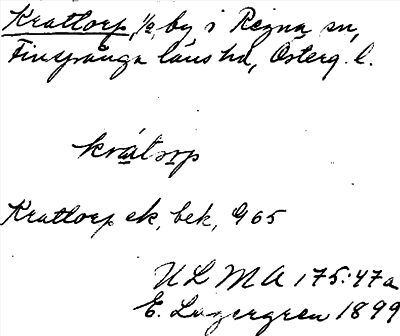 Krattorp, 1/2, by i Regna sn,
Finspånga läns hd, Österg. l.
kråtorp
Krattorp ek, bek, 965
ULMA 175:47a
E. Lagergren 1899